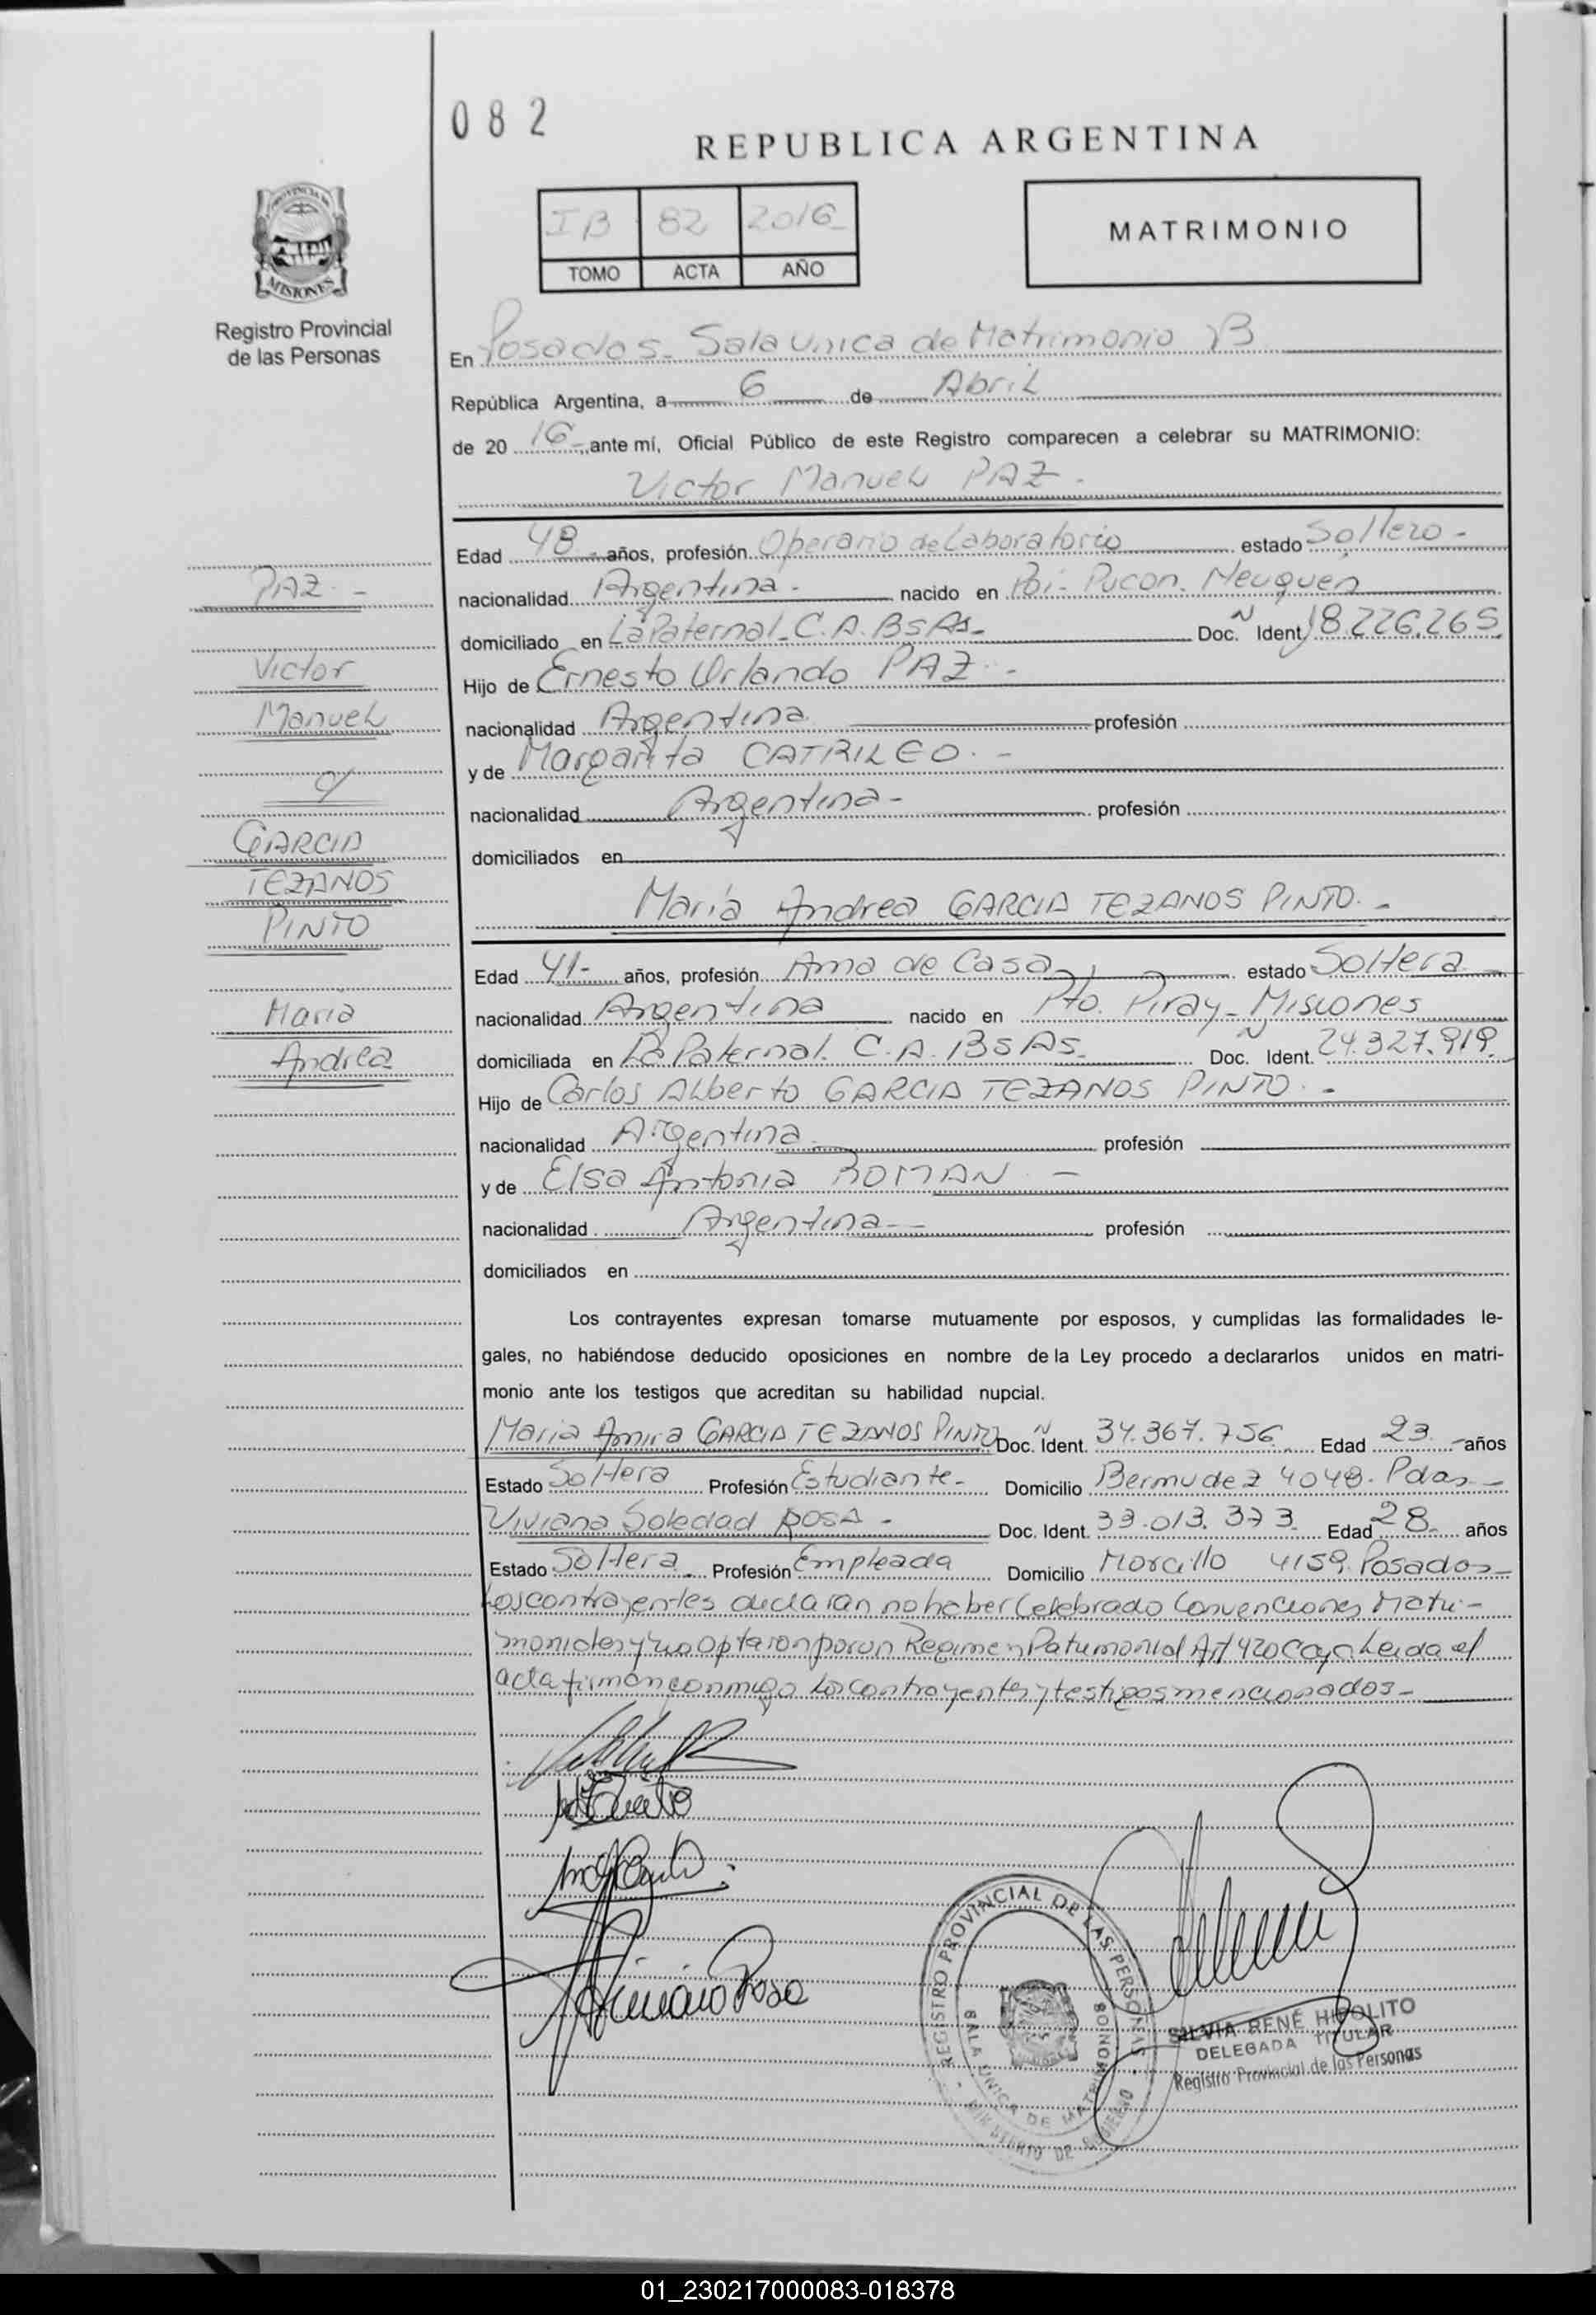 082
REPUBLICA ARGENTINA
IB 82 2016
TOMO ACTA AÑO
MATRIMONIO
PROVINCIA DE
MISIONES
Registro Provincial
de las Personas
En Posadas- Sala Unica de Matrimonio IB
República Argentina, a 6 de Abril
de 20 16 ante mí, Oficial Público de este Registro comparecen a celebrar su MATRIMONIO:
Victor Manuel PAZ -
Edad 48 - años, profesión Operario de Laboratorio estado Soltero -
nacionalidad Argentina - nacido en Poi- Pucon. Neuquén
domiciliado en La Paternal- C.A. BsAs- Doc. N Ident 18.226.265
Hijo de Ernesto Orlando PAZ . -
nacionalidad Argentina profesión
y de Margarita CATRILEO . -
nacionalidad Argentina - profesión
domiciliados en
PAZ . -
Victor
Manuel
c/
GARCIA
TEZANOS
PINTO
Maria
Andrea
María Andrea GARCIA TEZANOS PINTO . -
Edad 41- años, profesión Ama de Casa estado Soltera -
nacionalidad Argentina nacido en Pto. Piray- Misiones
domiciliada en La Paternal. C.A. BsAs- Doc. N Ident. 24.327.919.
Hijo de Carlos Alberto GARCIA TEZANOS PINTO . -
nacionalidad Argentina profesión
y de Elsa Antonia ROMAN . -
nacionalidad Argentina - profesión
domiciliados en
Los contrayentes expresan tomarse mutuamente por esposos, y cumplidas las formalidades le-
gales, no habiéndose deducido oposiciones en nombre de la Ley procedo a declararlos unidos en matri-
monio ante los testigos que acreditan su habilidad nupcial.
Maria Amira GARCIA TEZANOS PINTO Doc. N Ident. 34.367.756 Edad 23 - años
Estado Soltera Profesión Estudiante- Domicilio Bermudez 4048- Pdas-
Viviana Soledad ROSA - Doc. Ident. 33.013.373 Edad 28- años
Estado Soltera Profesión Empleada Domicilio Morcillo 4159. Posadas-
Los contrayentes declaran no haber Celebrado Convenciones Matri-
moniales y no optaron por un Regimen Patrimonial Art 420 Leida el
acta firman conmigo los contrayentes y testigos mencionados-
Viviana Rosa
REGISTRO PROVINCIAL DE LAS PERSONAS
SALA UNICA DE MATRIMONIOS
MINISTERIO DE GOBIERNO
SILVIA RENÉ HIPOLITO
DELEGADA TITULAR
Registro Provincial de las Personas
01_230217000083-018378